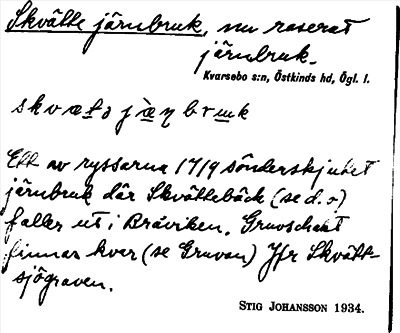 Skvätte järnbruk, nu raserat
järnbruk.
Kvarsebo s:n, Östkinds hd, Ögl. l.
skvæt̲ə jæ̀ṇbruk
Ett av ryssarna 1719 sönderskjutet
järnbruk där Skvättebäck (se d. o)
faller ut i Bråviken. Gruvschakt
finnas kvar (se Gruvan) Jfr Skvätt-
sjögraven.
STIG JOHANSSON 1934.